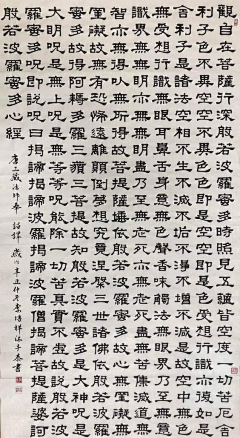 觀自在菩薩行深般若波羅蜜多時照見五蘊皆空度一切苦厄舍
利子色不異空空不異色色即是空空即是色受想行識亦復如是
舍利子是諸法空相不生不滅不垢不淨不增不減是故空中無色
無受想行識無眼耳鼻舌身意無色聲香味觸法無眼界乃至無意
識界無無明亦無無明盡乃至無老死亦無老死盡無苦集滅道無
智亦無得以無所得故菩提薩埵依般若波羅蜜多故心無罣礙無
罣礙故無有恐怖遠離顛倒夢想究竟涅槃三世諸佛依般若波羅
蜜多故得阿耨多羅三藐三菩提故知般若波羅蜜多是大神咒是
大明咒是無上咒是無等等咒能除一切苦真實不虛故說般若波
羅蜜多咒即說咒曰揭諦揭諦波羅揭諦波羅僧揭諦菩提薩婆訶
般若波羅蜜多心經
唐三藏法師奉 詔譯 書